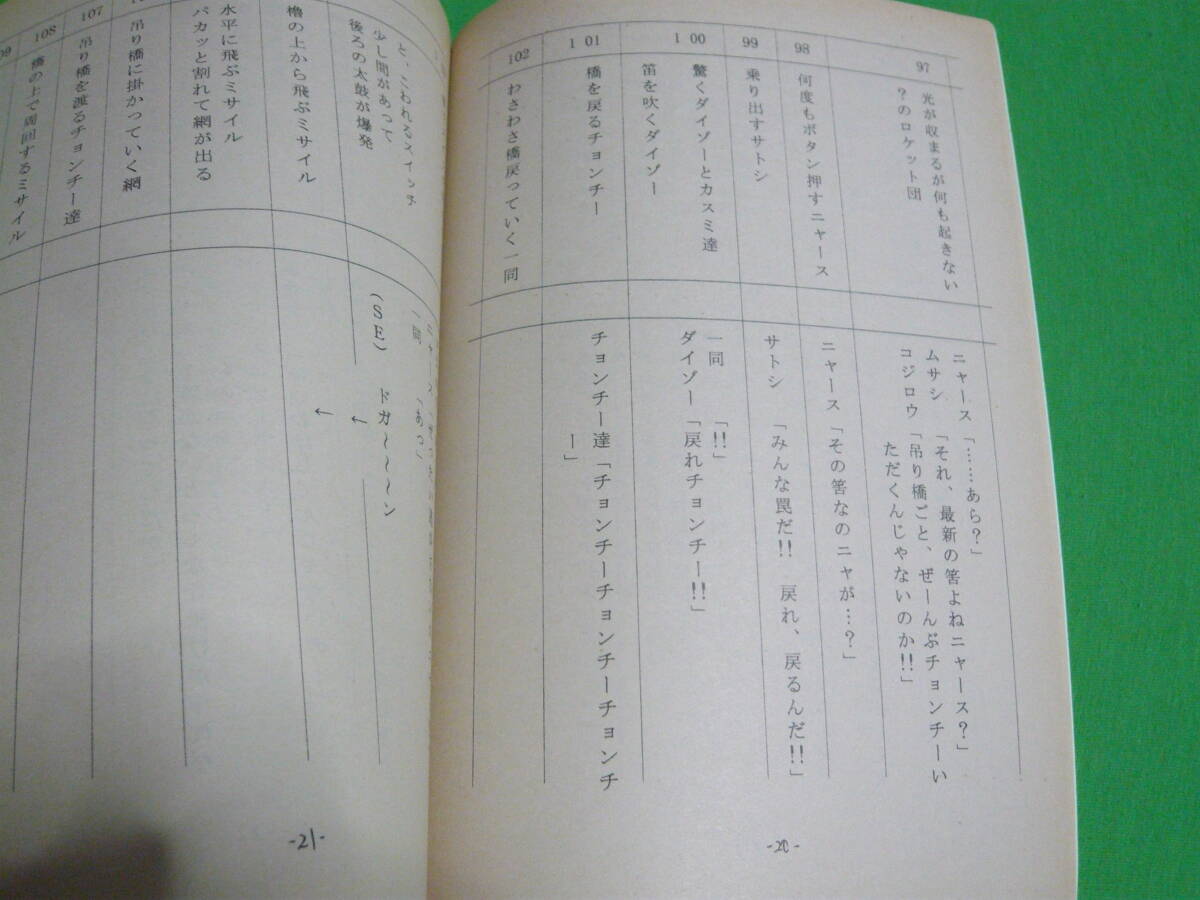 97
光が収まるが何も起きない
?のロケット団
ニャース「……あら?」
ムサシ「それ、最新の筈よねニャース?」
コジロウ「吊り橋ごと、ぜーんぶチョンチーい
ただくんじゃないのか!!」
98
何度もボタン押すニャース
ニャース「その筈なのニャが…?」
99
乗り出すサトシ
サトシ「みんな罠だ!! 戻れ、戻るんだ!!」
100
驚くダイゾーとカスミ達
笛を吹くダイゾー
一同「!!」
ダイゾー「戻れチョンチー!!」
101
橋を戻るチョンチー
チョンチー達「チョンチーチョンチーチョンチ
ー」
102
わさわさ橋戻っていく一同
-20-
と、こわれるスイッチ
少し間があって
後ろの太鼓が爆発
一同「あっ」
(SE) ドガ~~~ン
櫓の上から飛ぶミサイル
←
←
水平に飛ぶミサイル
パカッと割れて網が出る
吊り橋に掛かっていく網
107
吊り橋を渡るチョンチー達
108
橋の上で周回するミサイル
09
-21-